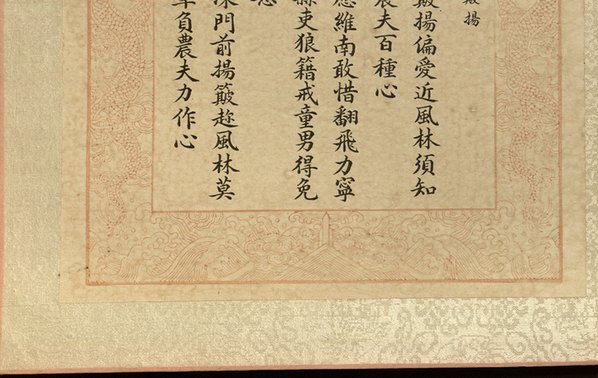 簸揚
簸揚偏愛近風林須知
農夫百種心
應維南敢惜翻飛力寧
吏狼籍戒童男得免
深門前揚簸趂風林莫
負農夫力作心